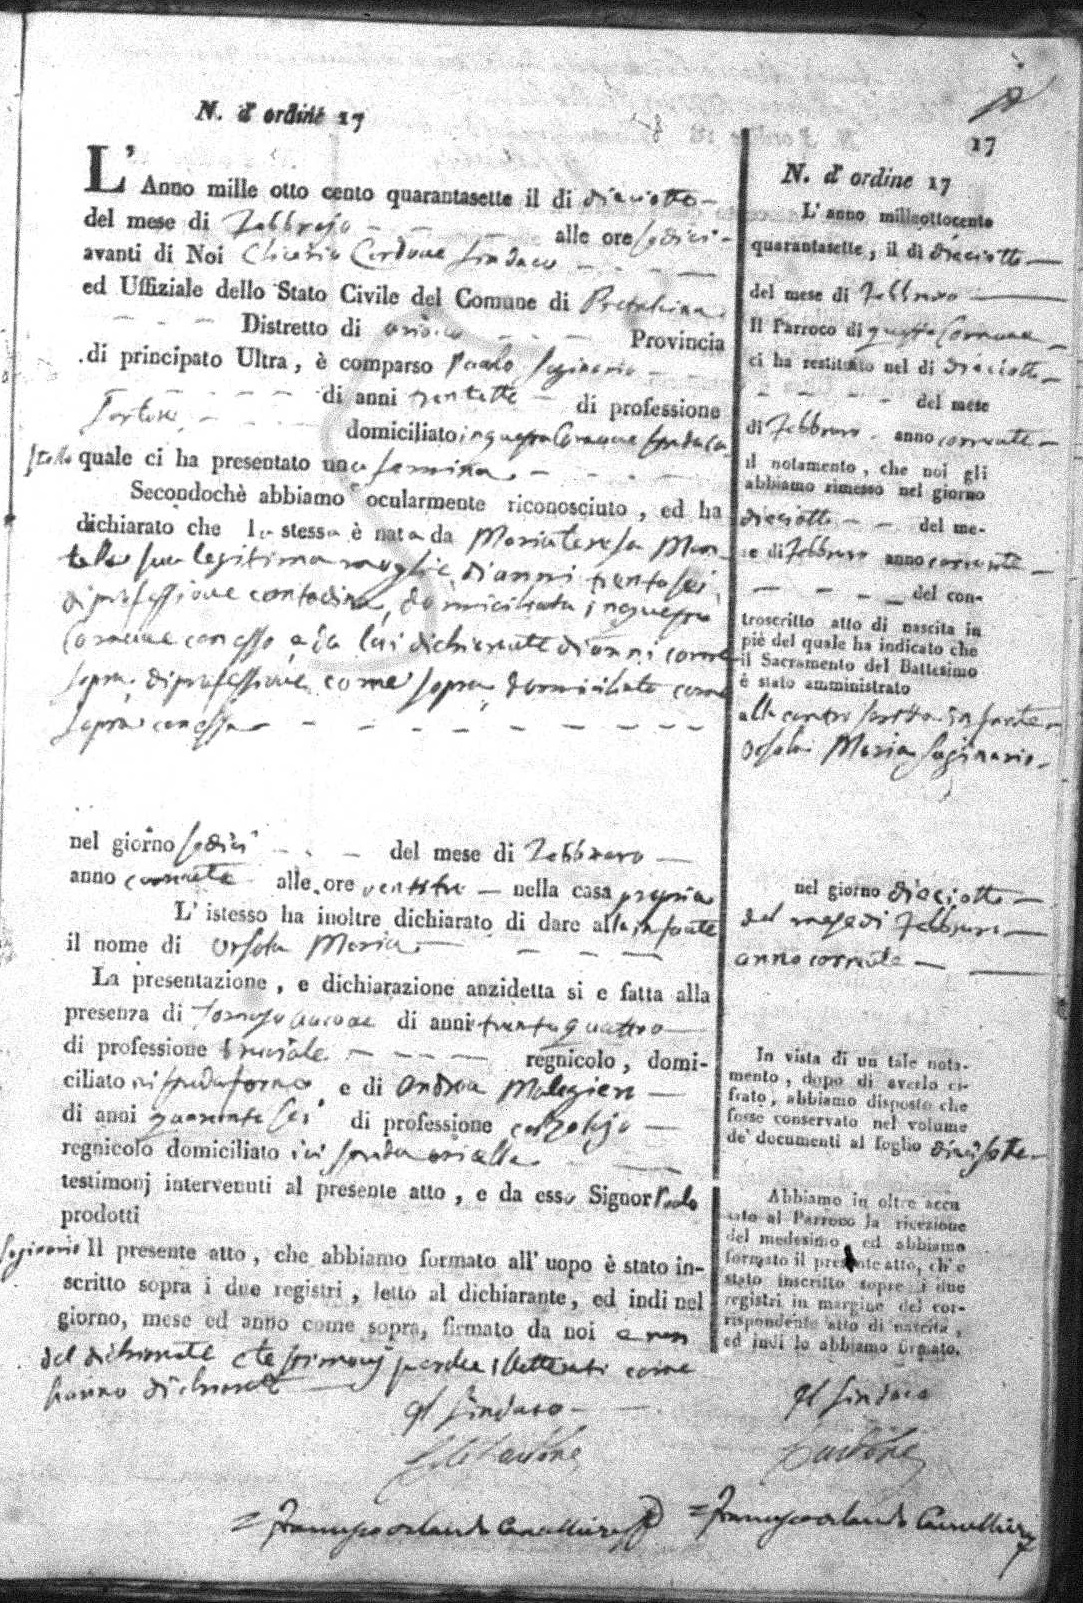 N. d' ordine 17
L' Anno mille otto cento quarantasette il di dieciotto
del mese di Febbrajo alle ore sedici
avanti di Noi Cardone Sindaco
ed Uffiziale dello Stato Civile del Comune di
Distretto di Provincia
di principato Ultra, è comparso Paolo Saginario
di anni di professione
domiciliato in questo Comune
quale ci ha presentato una femina
Secondochè abbiamo ocularmente riconosciuto, ed ha
dichiarato che la stessa è nata da Maria Teresa
sua legitima moglie, d'anni trentasei,
di professione contadina, domiciliata in questo
Comune con esso, e da lui dichiarante di anni come
sopra, di professione come sopra, domiciliato come
sopra con essa
nel giorno sedici del mese di Febbraro
anno corrente alle ore ventitre nella casa propria
L' istesso ha inoltre dichiarato di dare alla infante
il nome di Orsola Maria
La presentazione, e dichiarazione anzidetta si e fatta alla
presenza di di anni trentaquattro
di professione regnicolo, domi-
ciliato e di Andrea
di anni quarantasei di professione calzolajo
regnicolo domiciliato ivi strada
testimonj intervenuti al presente atto, e da esso Signor Paolo
prodotti
Saginario Il presente atto, che abbiamo formato all' uopo è stato in-
scritto sopra i due registri, letto al dichiarante, ed indi nel
giorno, mese ed anno come sopra, firmato da noi e non
dal dichiarante e testimonj come
hanno dichiarato
Il Sindaco
Cardone
17
N. d' ordine 17
L' anno milleottocento
quarantasette, il di dieciotto
del mese di Febbraro
Il Parroco di questo Comune
ci ha restituito nel di dieciotto
del mese
di Febbraro anno corrente
il notamento, che noi gli
abbiamo rimesso nel giorno
dieciotto del me-
se di Febbraro anno corrente
del con-
troscritto atto di nascita in
piè del quale ha indicato che
il Sacramento del Battesimo
è stato amministrato
alla controscritta infante
Orsola Maria Saginario
nel giorno dieciotto
del mese di Febbraro
anno corrente
In vista di un tale nota-
mento, dopo di averlo ci-
frato, abbiamo disposto che
fosse conservato nel volume
de' documenti al foglio diecisette
Abbiamo in oltre accu
sato al Parroco la ricezione
del medesimo, ed abbiamo
formato il presente atto, ch'è
stato inscritto sopra i due
registri in margine del cor-
rispondente atto di nascita,
ed indi lo abbiamo firmato.
Il Sindaco
Cardone